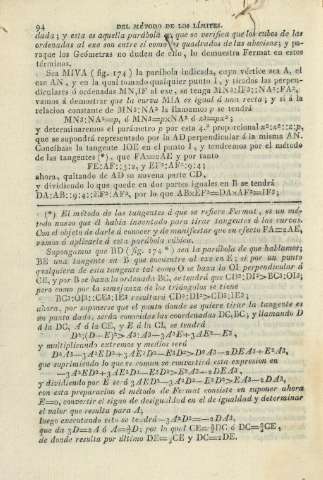 94 DEL MÉTODO DE LOS LÍMITES.
dada; y esta es aquella parábola en que se verifica que los cubos de las
ordenadas al exe son entre sí como los quadrados de las abscisas; y pa-
raque los Geómetras no duden de ello, lo demuestra Fermat en estos
términos.
Sea MIVA (fig. 174) la parábola indicada, cuyo vértice sea A, el
exe AN, y en la qual tomado qualquier punto I, y tiradas las perpen-
diculares á ordenadas MN, IF al exe, se tenga MN3:IF3::NA2:FA2,
vamos á demostrar que la curva MIA es igual á una recta; y si á la
relacion constante de MN3:NA2 la llamamos p se tendrá
MN3:NA2=p, ó MN3=p×NA2
y determinaremos el parámetro p por esta
que se supondrá representado por la AD perpendicular á la misma AN.
Concíbase la tangente IOE en el punto I, y tendremos por el método
de las tangentes (*), que FA=2AE y por tanto
FE:AF::3:2, y EF2:AF2::9:4;
ahora, quitando de AD su novena parte CD,
y dividiendo lo que quede en dos partes iguales en B se tendrá
DA:AB::9:4::EF2:AF2, por lo que AB×EF2=DA×AF2=IF3;
(*) El método de las tangentes á que se refiere Fermat, es un mé-
todo nuevo que él habia inventado para tirar tangentes á las curvas.
Con el objeto de darle á conocer y de manifestar que en efecto FA=2AE,
vamos á aplicarle á esta parábola cúbica.
Supongamos que BD (fig. 174*) sea la parábola de que hablamos;
BE una tangente en B que encuentre al exe en E; si por un punto
qualquiera de esta tangente tal como O se baxa la OI perpendicular á
CE, y por B se baxa la ordenada BC, se tendrá que CD2:DI2>BC3:OI3;
pero como por la semejanza de los triángulos se tiene
BC3:OI3::CE3:IE3 resultará CD2:DI2>CE3:IE3;
ahora, por suponerse que el punto donde se quiere tirar la tangente es
un punto dado, serán conocidas las coordenadas DC, BC; y llamando D
á la DC, A á la CE, y E á la CI, se tendrá
D2:(D-E)2>A3:A3-3A2E+3AE2-E3,
y multiplicando extremos y medios será
D2A3-3A2ED2+3AE2D2-E3D2>D2A3-2DEA3+E2A3,
que suprimiendo lo que es comun se convertirá esta expresion en
-3A2ED2+3AE2D2-E3D2>E2A3-2DEA3,
y dividiendo por E será 3AED2-3A2D2-E2D2>EA3-2DA3,
con esta preparacion el método de Fermat consiste en suponer ahora
E=0, convertir el signo de desigualdad en el de igualdad y determinar
el valor que resulta para A;
luego executando esto se tendrá -3A2D2=-2DA3,
que da 3D=2A ó A=3/2D; por lo qual CE=3/2DC ó DC=2/3CE,
de donde resulta por último DE=1/3CE y DC=2DE.